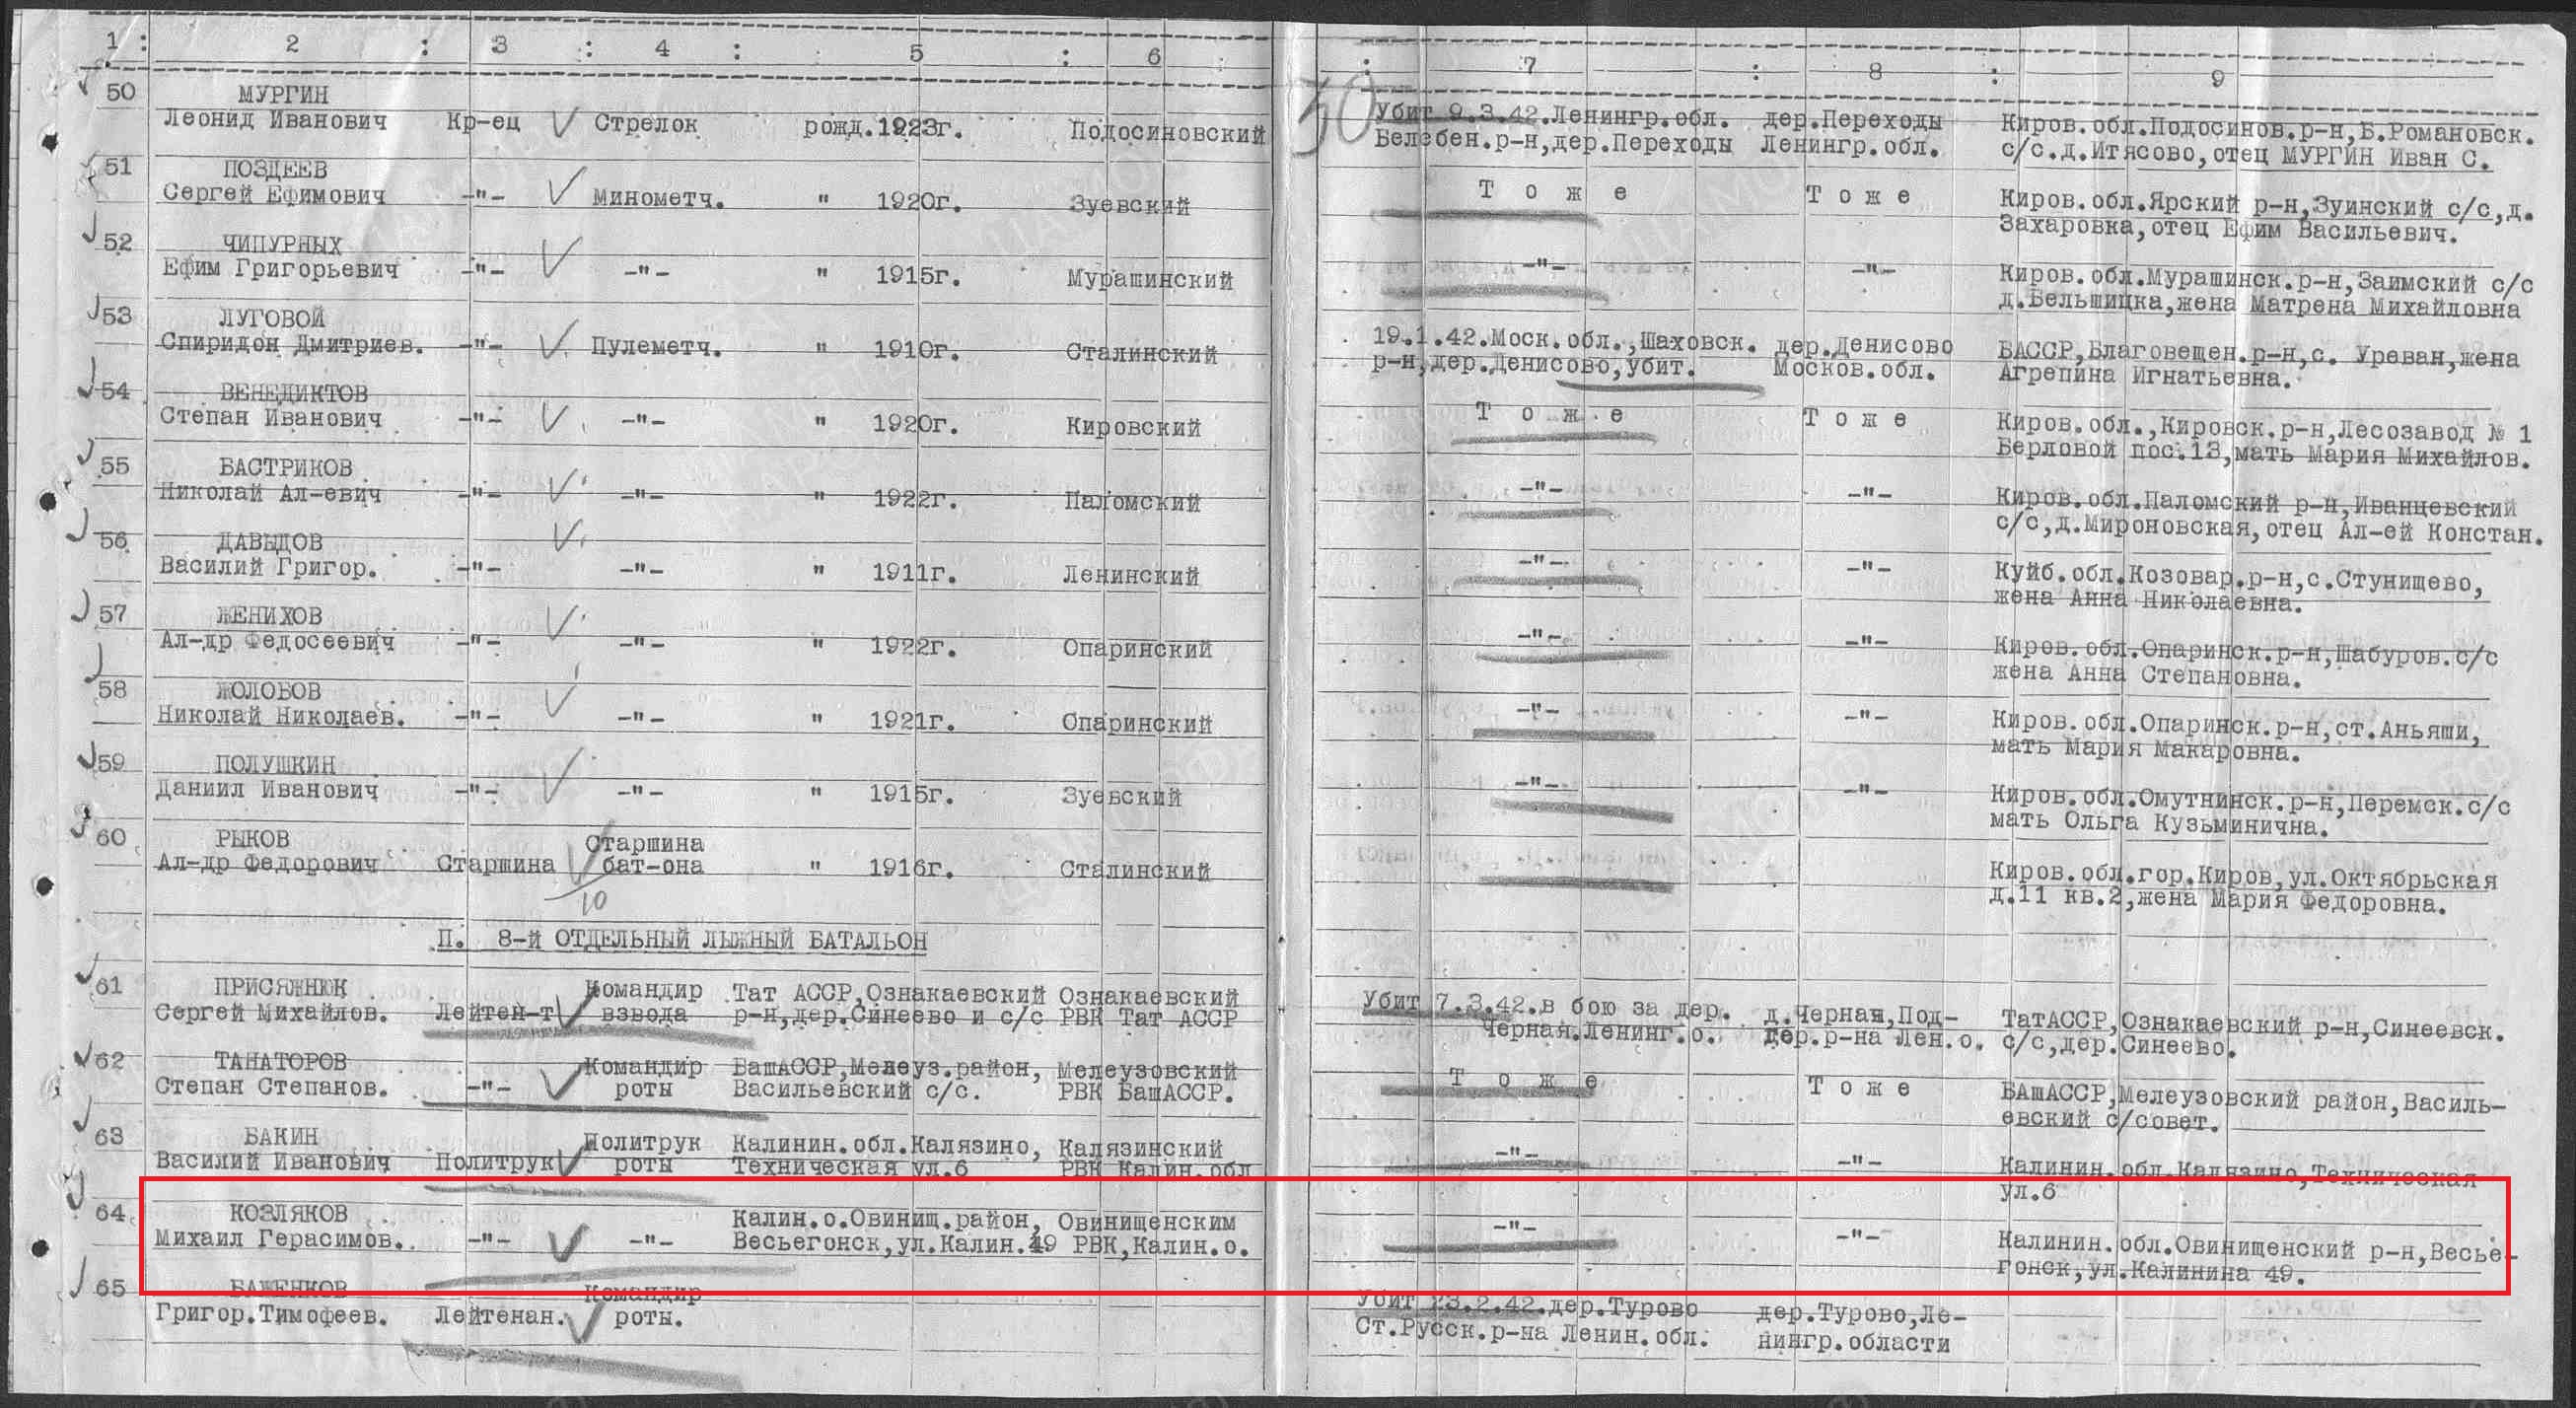 1 : 2 : 3 : 4 : 5 : 6 : 7 : 8 : 9
50 МУРГИН
Леонид Иванович Кр-ец Стрелок рожд.1923г. Подосиновский
30 Убит 9.3.42.Ленингр.обл. дер.Переходы Киров.обл.Подосинов.р-н,Б.Романовск.
Белебен.р-н,дер.Переходы Ленингр.обл. с/с.д.Итясово,отец МУРГИН Иван С.
51 ПОЗДЕЕВ
Сергей Ефимович -"- Минометч. " 1920г. Зуевский
Т о ж е Т о ж е Киров.обл.Ярский р-н,Зуинский с/с,д.
Захаровка,отец Ефим Васильевич.
52 ЧИПУРНЫХ
Ефим Григорьевич -"- -"- " 1915г. Мурашинский
-"- -"- Киров.обл.Мурашинск.р-н,Заимский с/с
д.Бельшицка,жена Матрена Михайловна
53 ЛУГОВОЙ
Спиридон Дмитриев. -"- Пулеметч. " 1910г. Сталинский
19.1.42.Моск.обл.,Шаховск. дер.Денисово БАССР,Благовещен.р-н,с. Уреван,жена
р-н,дер.Денисово,убит. Москов.обл. Агрепина Игнатьевна.
54 ВЕНЕДИКТОВ
Степан Иванович -"- -"- " 1920г. Кировский
Т о ж е Т о ж е Киров.обл.,Кировск.р-н,Лесозавод № 1
Берловой пос.13,мать Мария Михайлов.
55 БАСТРИКОВ
Николай Ал-евич -"- -"- " 1922г. Паломский
-"- -"- Киров.обл.Паломский р-н,Иванцевский
с/с,д.Мироновская,отец Ал-ей Констан.
56 ДАВЫДОВ
Василий Григор. -"- -"- " 1911г. Ленинский
-"- -"- Куйб.обл.Козовар.р-н,с.Стунищево,
жена Анна Николаевна.
57 ЖЕНИХОВ
Ал-др Федосеевич -"- -"- " 1922г. Опаринский
-"- -"- Киров.обл.Опаринск.р-н,Шабуров.с/с
жена Анна Степановна.
58 ЖОЛОБОВ
Николай Николаев. -"- -"- " 1921г. Опаринский
-"- -"- Киров.обл.Опаринск.р-н,ст.Аньяши,
мать Мария Макаровна.
59 ПОЛУШКИН
Даниил Иванович -"- -"- " 1915г. Зуевский
-"- -"- Киров.обл.Омутнинск.р-н,Перемск.с/с
мать Ольга Кузьминична.
60 РЫКОВ Старшина
Ал-др Федорович Старшина бат-она " 1916г. Сталинский
10
Киров.обл.гор.Киров,ул.Октябрьская
д.11 кв.2,жена Мария Федоровна.
П. 8-й ОТДЕЛЬНЫЙ ЛЫЖНЫЙ БАТАЛЬОН
61 ПРИСЯЖНЮК Командир Тат АССР,Ознакаевский Ознакаевский
Сергей Михайлов. Лейтен-т взвода р-н,дер.Синеево и с/с РВК Тат АССР
Убит 7.3.42.в бою за дер. д.Черная,Под- ТатАССР,Ознакаевский р-н,Синеевск.
Черная.Ленинг.о. дер.р-на Лен.о. с/с,дер.Синеево.
62 ТАНАТОРОВ Командир БашАССР,Мелеуз.район, Мелеузовский
Степан Степанов. -"- роты Васильевский с/с. РВК БашАССР.
Т о ж е Т о ж е БАшАССР,Мелеузовский район,Василь-
евский с/совет.
63 БАКИН Политрук Калинин.обл.Калязино, Калязинский
Василий Иванович Политрук роты Техническая ул.6 РВК Калин.обл
-"- -"- Калинин.обл.Калязино,Техническая
ул.6
64 КОЗЛЯКОВ Калин.о.Овинищ.район, Овинищенским
Михаил Герасимов. -"- -"- Весьегонск,ул.Калин.49 РВК,Калин.о.
-"- -"- Калинин.обл.Овинищенский р-н,Весье-
гонск,ул.Калинина 49.
65 БАЖЕНКОВ Командир
Григор.Тимофеев. Лейтенан. роты.
Убит 23.2.42.дер.Турово дер.Турово,Ле-
Ст.Русск.р-на Ленин.обл. нингр.области